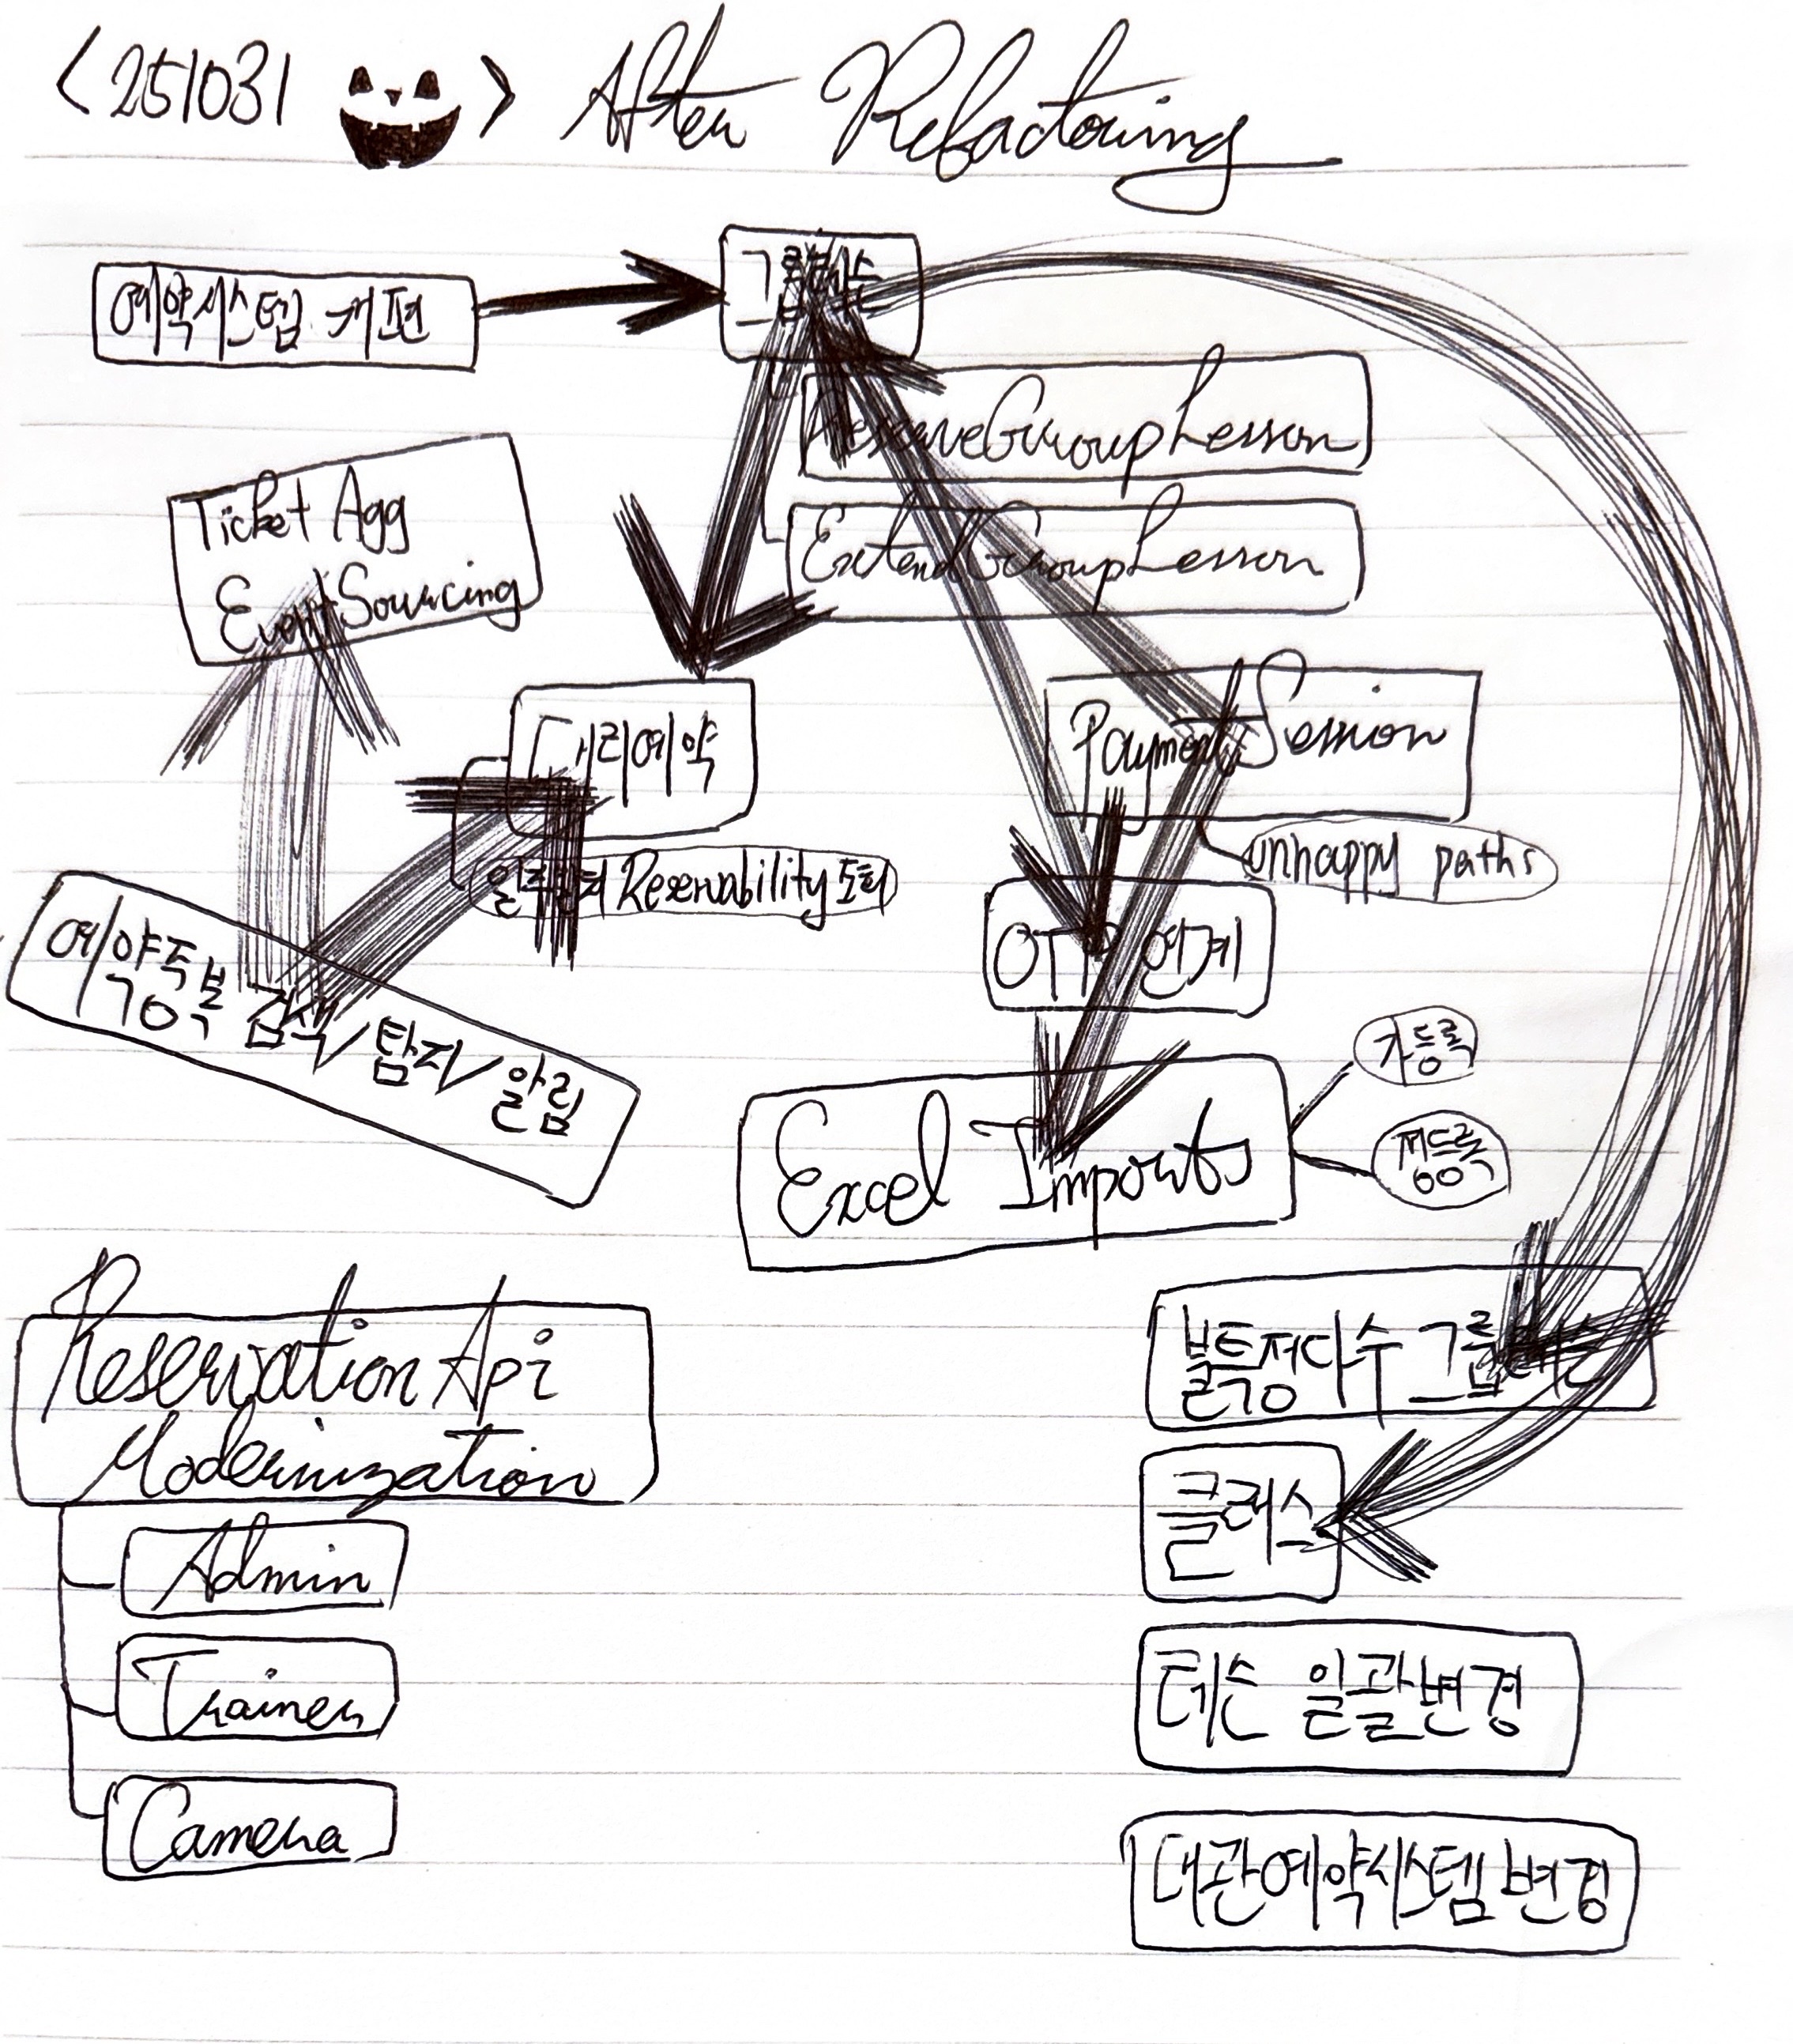 <251031 > After Refactoring
예약시스템 개편
그룹레슨
ReserveGroupLesson
Ticket Agg
EventSourcing
ExtendGroupLesson
대리예약
PaymentSession
unhappy paths
Reservability 조회
예약중복 검색/탐지/알림
연계
가등록
찐등록
Excel Imports
Reservation Api
Modernization
불특정다수 그룹레슨
Admin
클래스
Trainer
레슨 일괄변경
Camera
대관예약시스템 변경